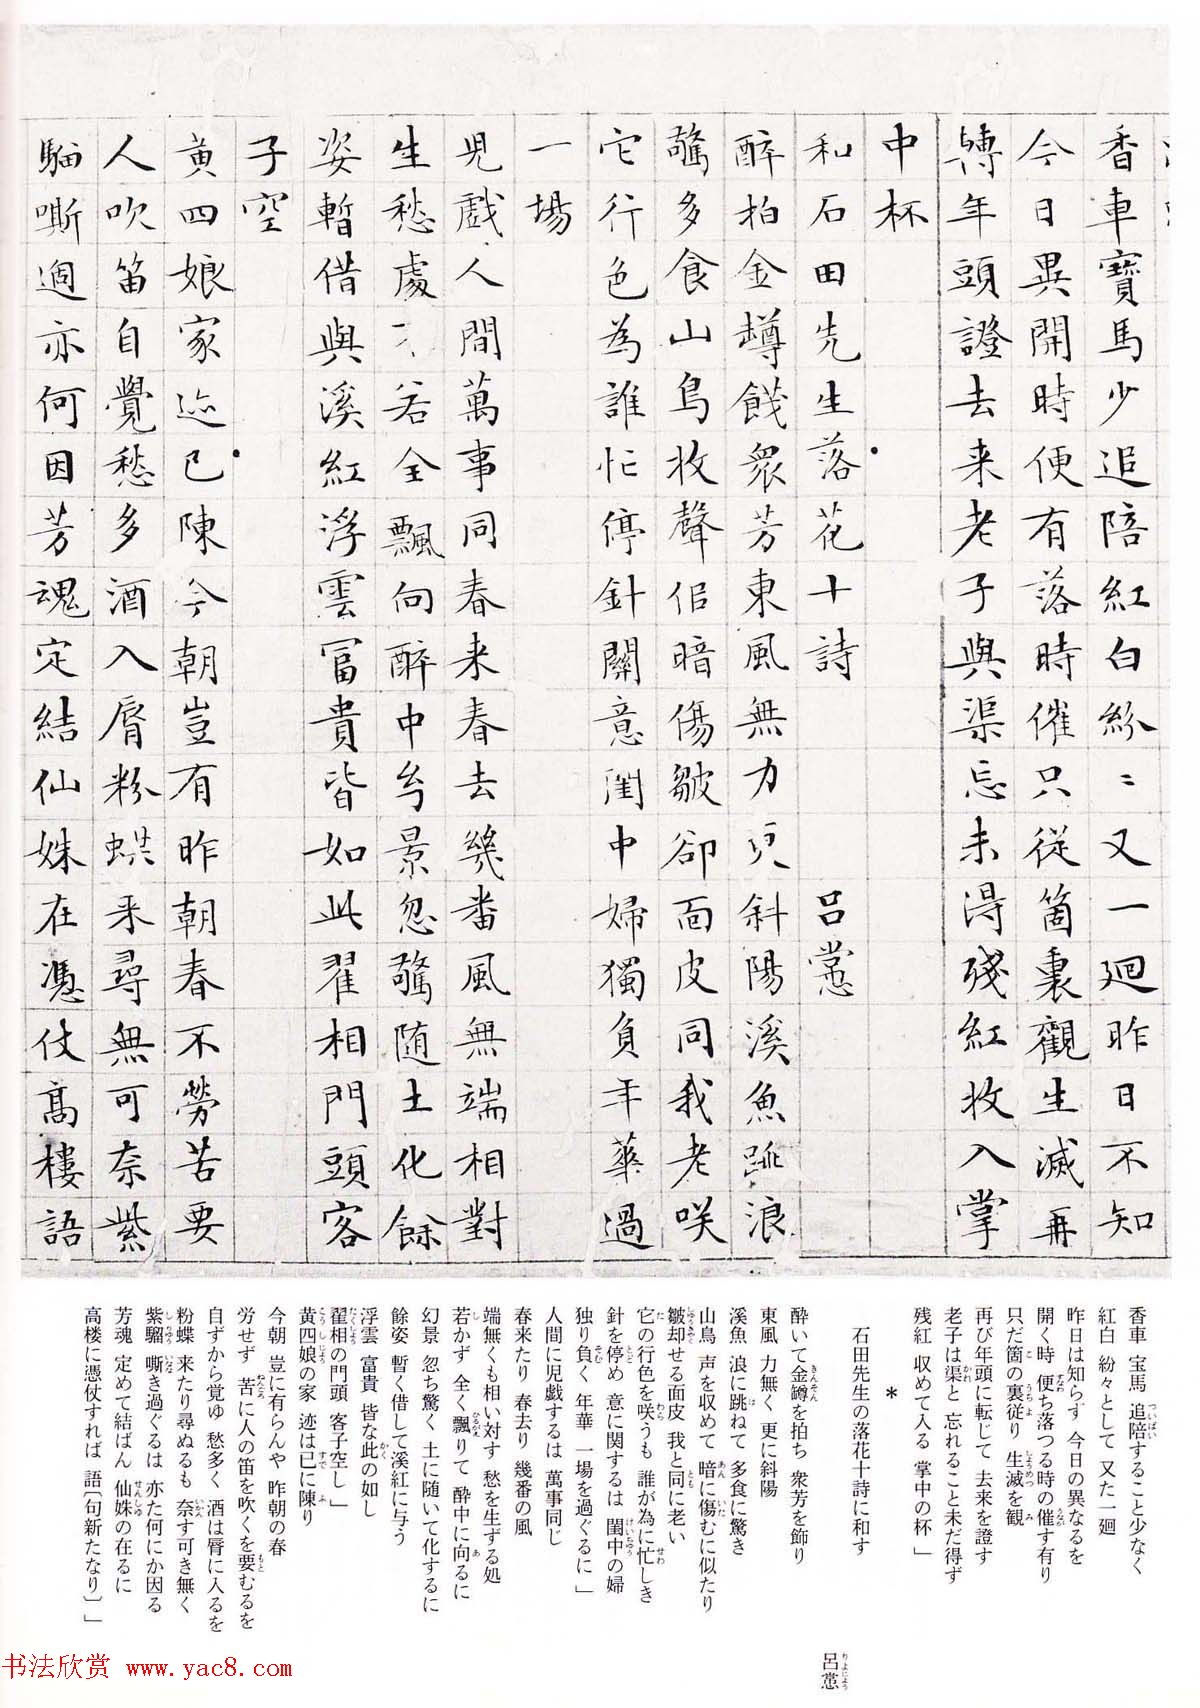 香車寶馬少追陪紅白紛〻又一迴昨日不知
今日異開時便有落時催只従箇裏觀生滅再
轉年頭證去来老子與渠忘未得殘紅收入掌
中杯
和石田先生落花十詩 呂㦂
醉拍金罇餞衆芳東風無力更斜陽溪魚跳浪
驚多食山鳥收聲佀暗傷皺卻面皮同我老咲
它行色為誰忙停針關意閨中婦獨負年華過
一場
児戲人間萬事同春来春去幾番風無端相對
生愁處不若全飄向醉中幻景忽驚随土化餘
姿暫借與溪紅浮雲冨貴皆如此翟相門頭客
子空
黄四娘家迹已陳今朝豈有昨朝春不勞苦要
人吹笛自覺愁多酒入脣粉蜨来尋無可奈紫
騮嘶過亦何因芳魂定結仙姝在憑仗高樓語
香車 宝馬 追陪すること少なく
紅白 紛々として 又た一廻
昨日は知らず 今日の異なるを
開く時 便ち落つる時の催す有り
只だ箇の裏従り 生滅を観
再び年頭に転じて 去来を證す
老子は渠と 忘れること未だ得ず
残紅 収めて入る 掌中の杯」
*
石田先生の落花十詩に和す
呂㦂
酔いて金罇を拍ち 衆芳を飾り
東風 力無く 更に斜陽
溪魚 浪に跳ねて 多食に驚き
山鳥 声を収めて 暗に傷むに似たり
皺却せる面皮 我と同に老い
它の行色を咲うも 誰が為に忙しき
針を停め 意に関するは 閨中の婦
独り負く 年華 一場を過ぐるに」
人間に児戯するは 萬事同じ
春来たり 春去り 幾番の風
端無くも相い対す 愁を生ずる処
若かず 全く飄りて 酔中に向るに
幻景 忽ち驚く 土に随いて化するに
餘姿 暫く借して溪紅に与う
浮雲 富貴 皆な此の如し
翟相の門頭 客子空し」
黄四娘の家 迹は已に陳り
今朝 豈に有らんや 昨朝の春
労せず 苦に人の笛を吹くを要むるを
自ずから覚ゆ 愁多く 酒は唇に入るを
粉蝶 来たり尋ぬるも 奈す可き無く
紫騮 嘶き過ぐるは 亦た何にか因る
芳魂 定めて結ばん 仙姝の在るに
高楼に憑仗すれば 語〔句新たなり〕」
书法欣赏 www.yac8.com